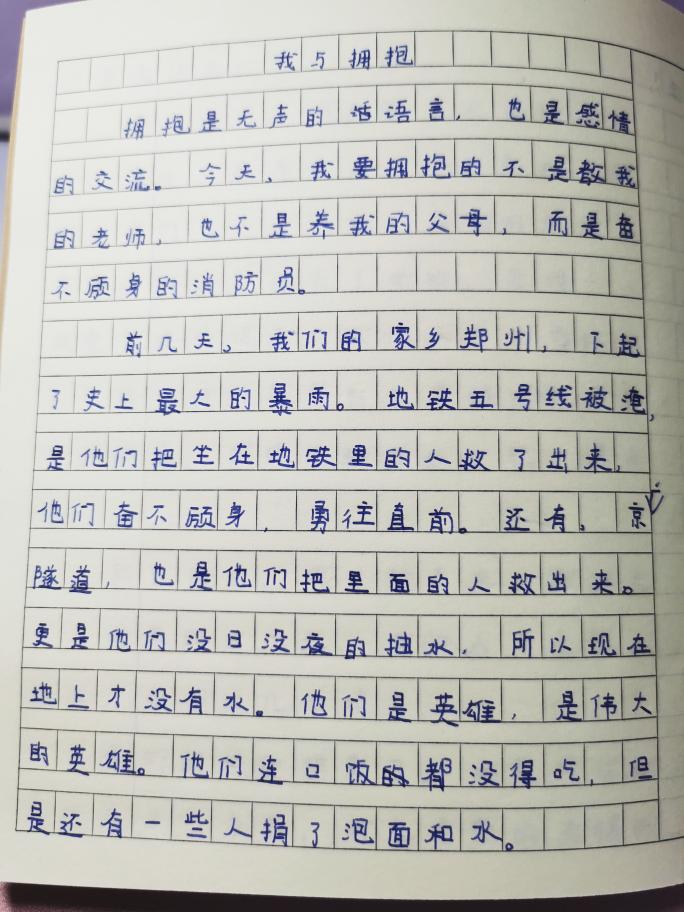 我与拥抱
拥抱是无声的话语言，也是感情
的交流。今天，我要拥抱的不是教我
的老师，也不是养我的父母，而是奋
不顾身的消防员。
前几天，我们的家乡郑州，下起
了史上最大的暴雨。地铁五号线被淹，
是他们把坐在地铁里的人救了出来，
他们奋不顾身，勇往直前。还有，京
隧道，也是他们把里面的人救出来。
更是他们没日没夜的抽水，所以现在
地上才没有水。他们是英雄，是伟大
的英雄。他们连口饭的都没得吃，但
是还有一些人捐了泡面和水。